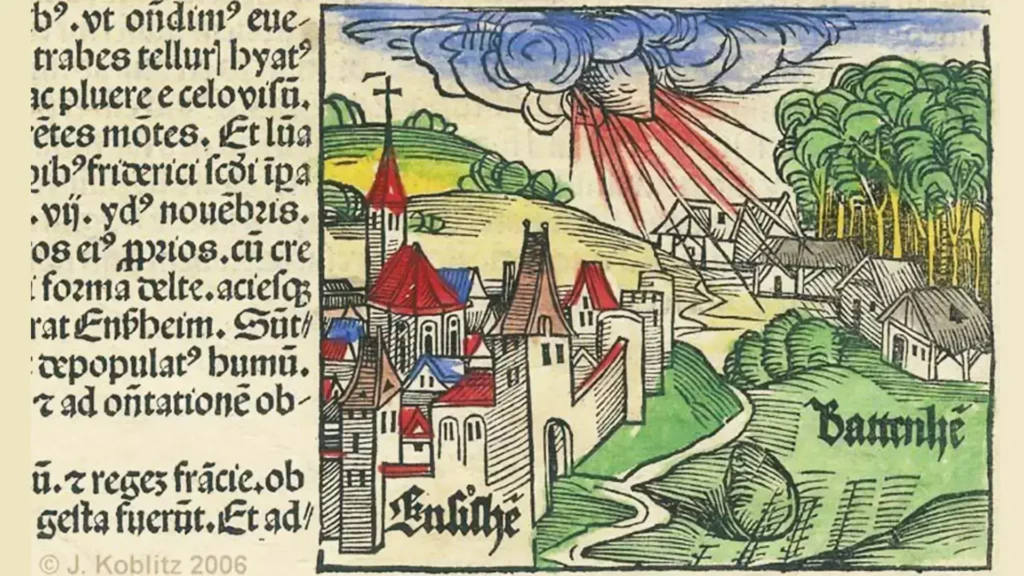 bꝰ. vt oñdimꝰ eue-
trabes tellurꝭ hyatꝰ
ac pluere e celo visū.
rētes mōtes. Et lūa
pibꝰ friderici scđi īpa
. vij. ydꝰ nouēbris.
os eiꝰ ꝓprios. cū cre
forma delte. aciesqꝫ
rat Ensheim. Sūt
depopulatꝰ humū.
⁊ ad oñtationē ob-
ū. ⁊ regeꝫ frācie. ob
gesta fuerūt. Et ad
Ensishē
Battenhē
© J. Koblitz 2006